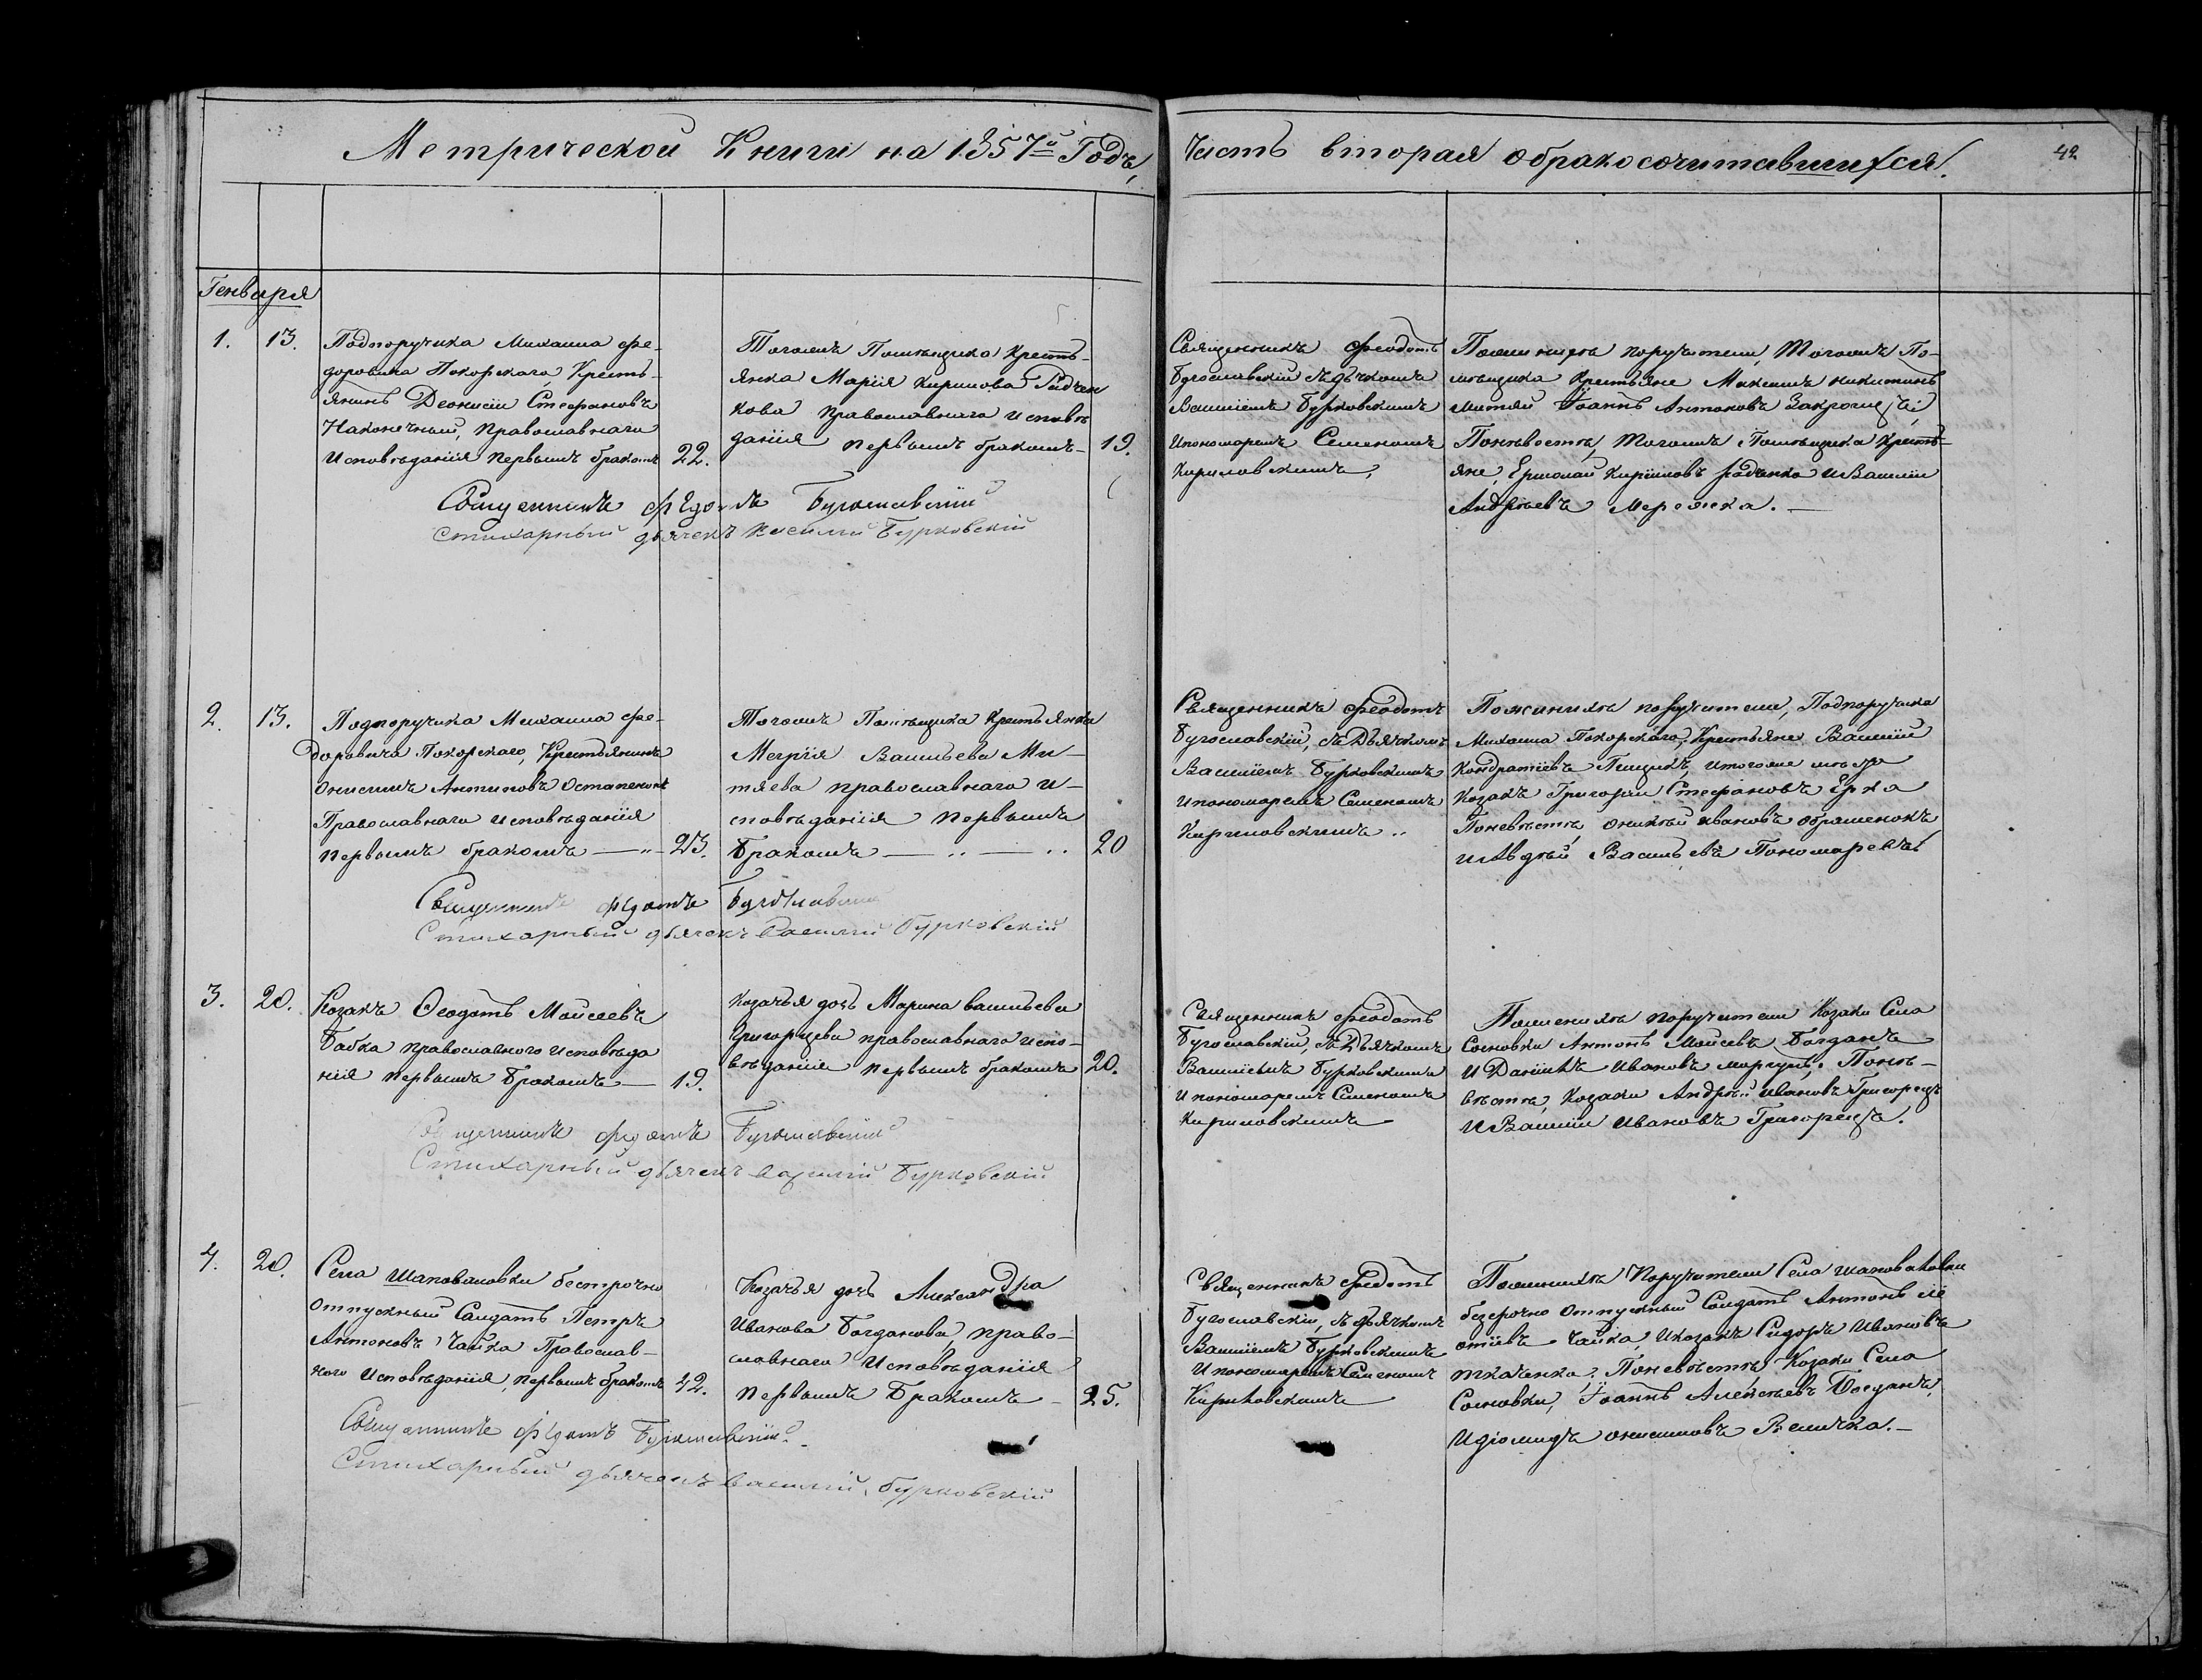 Метрической Книги на 1857й Годъ,
Часть вторая обракосочитавшихся.
42
Генваря
1. 13.
Подпоручика Михаила Фе-
доровича Покорскаго, Кресть-
янинъ Деонисiй Стефановъ
Наконечный, Православнаго
Исповѣданiя первымъ бракомъ 22.
Тогожъ Помѣщика Кресть-
янка Марiя Кирилова Радчен
кова православнаго исповѣ
данiя первымъ бракомъ 19.
Священникъ Феодотъ
Бугославскiй съ дьячкомъ
Василiемъ Бурковскимъ
Ипономаремъ Семеномъ
Кириловскимъ,
По женихѣ поручители, Тогожъ По-
мѣщика Крестьяне Максимъ Никитинъ
Митяй Іоаннъ Антоновъ
Поневѣстѣ, Тогожъ Помѣщика Кресть-
яне, Ермолай Кириловъ Радченко и Василiй
Андрѣевъ Мережка.
Священникъ Федотъ Бугославскiй
Стихарный дьячекъ Василiй Бурковскiй
2. 13.
Подпоручика Михаила Фе-
доровича Покорскаго, Крестьянинъ
Онисимъ Антиповъ Остапенокъ
Православнаго исповѣданiя
первымъ бракомъ 23.
Тогожъ Помѣщика Крестьянка
Васильева Ми-
тяева православнаго и-
сповѣданiя первымъ
бракомъ 20
Священникъ Феодотъ
Бугославскiй, съ Дьячкомъ
Василiемъ Бурковскимъ
ипономаремъ Семеномъ
Кириловскимъ
По женихѣ поручители, Подпоручика
Михаила Покорскаго, Крестьяне Василiй
Кондратiевъ
козакъ Григорiй Стефановъ Ерха
Поневѣстѣ, Ивановъ
и Авдѣй Васильевъ Пономаревъ
Священникъ Федотъ Бугославскiй
Стихарный дьячекъ Василiй Бурковскiй
3. 20.
Козакъ Ѳеодотъ Мойсеевъ
Бабка православного исповѣда
нiя первымъ бракомъ 19.
Козачья дочь Марина Васильева
Григорцева православнаго испо-
вѣданiя первымъ бракомъ 20.
Священникъ Феодотъ
Бугославскiй, съ Дьячкомъ
Василiемъ Бурковскимъ
Ипономаремъ Семеномъ
Кириловскимъ
По женихѣ поручители Козаки Села
Сосновки Антонъ Мойсеевъ Богданъ
И Данiилъ Ивановъ Поне-
вѣстѣ, Козаки Андрѣй Ивановъ Григорецъ
И Василiй Ивановъ Григорецъ.
Священникъ Федотъ Бугославскiй
Стихарный дьячекъ Василiй Бурковскiй
4. 20.
Села Шаповаловки безсрочно
отпускный Салдатъ Петръ
Антоновъ Чайка Православ-
ного Исповѣданiя, первымъ бракомъ 42.
Козачья дочь Александра
Иванова Богданова, право-
славнаго Исповѣданiя
первымъ бракомъ 25.
Священникъ Феодотъ
Бугославскiй, съ дьячкомъ
Василiемъ Бурковскимъ
Ипономаремъ Семеномъ
Кириловскимъ
По женихѣ Поручители Села Шаповаловки
безсрочно отпускный Солдатъ Антонъ
Чайка, Икозакъ Сидоръ Ивановъ
Ткаченко. Поневѣстѣ Козаки Села
Сосновки, Іоаннъ Алексѣевъ Богданъ,
Идiомидъ Онисимовъ Величка.
Священникъ Федотъ Бугославскiй
Стихарный дьячекъ Василiй Бурковскiй